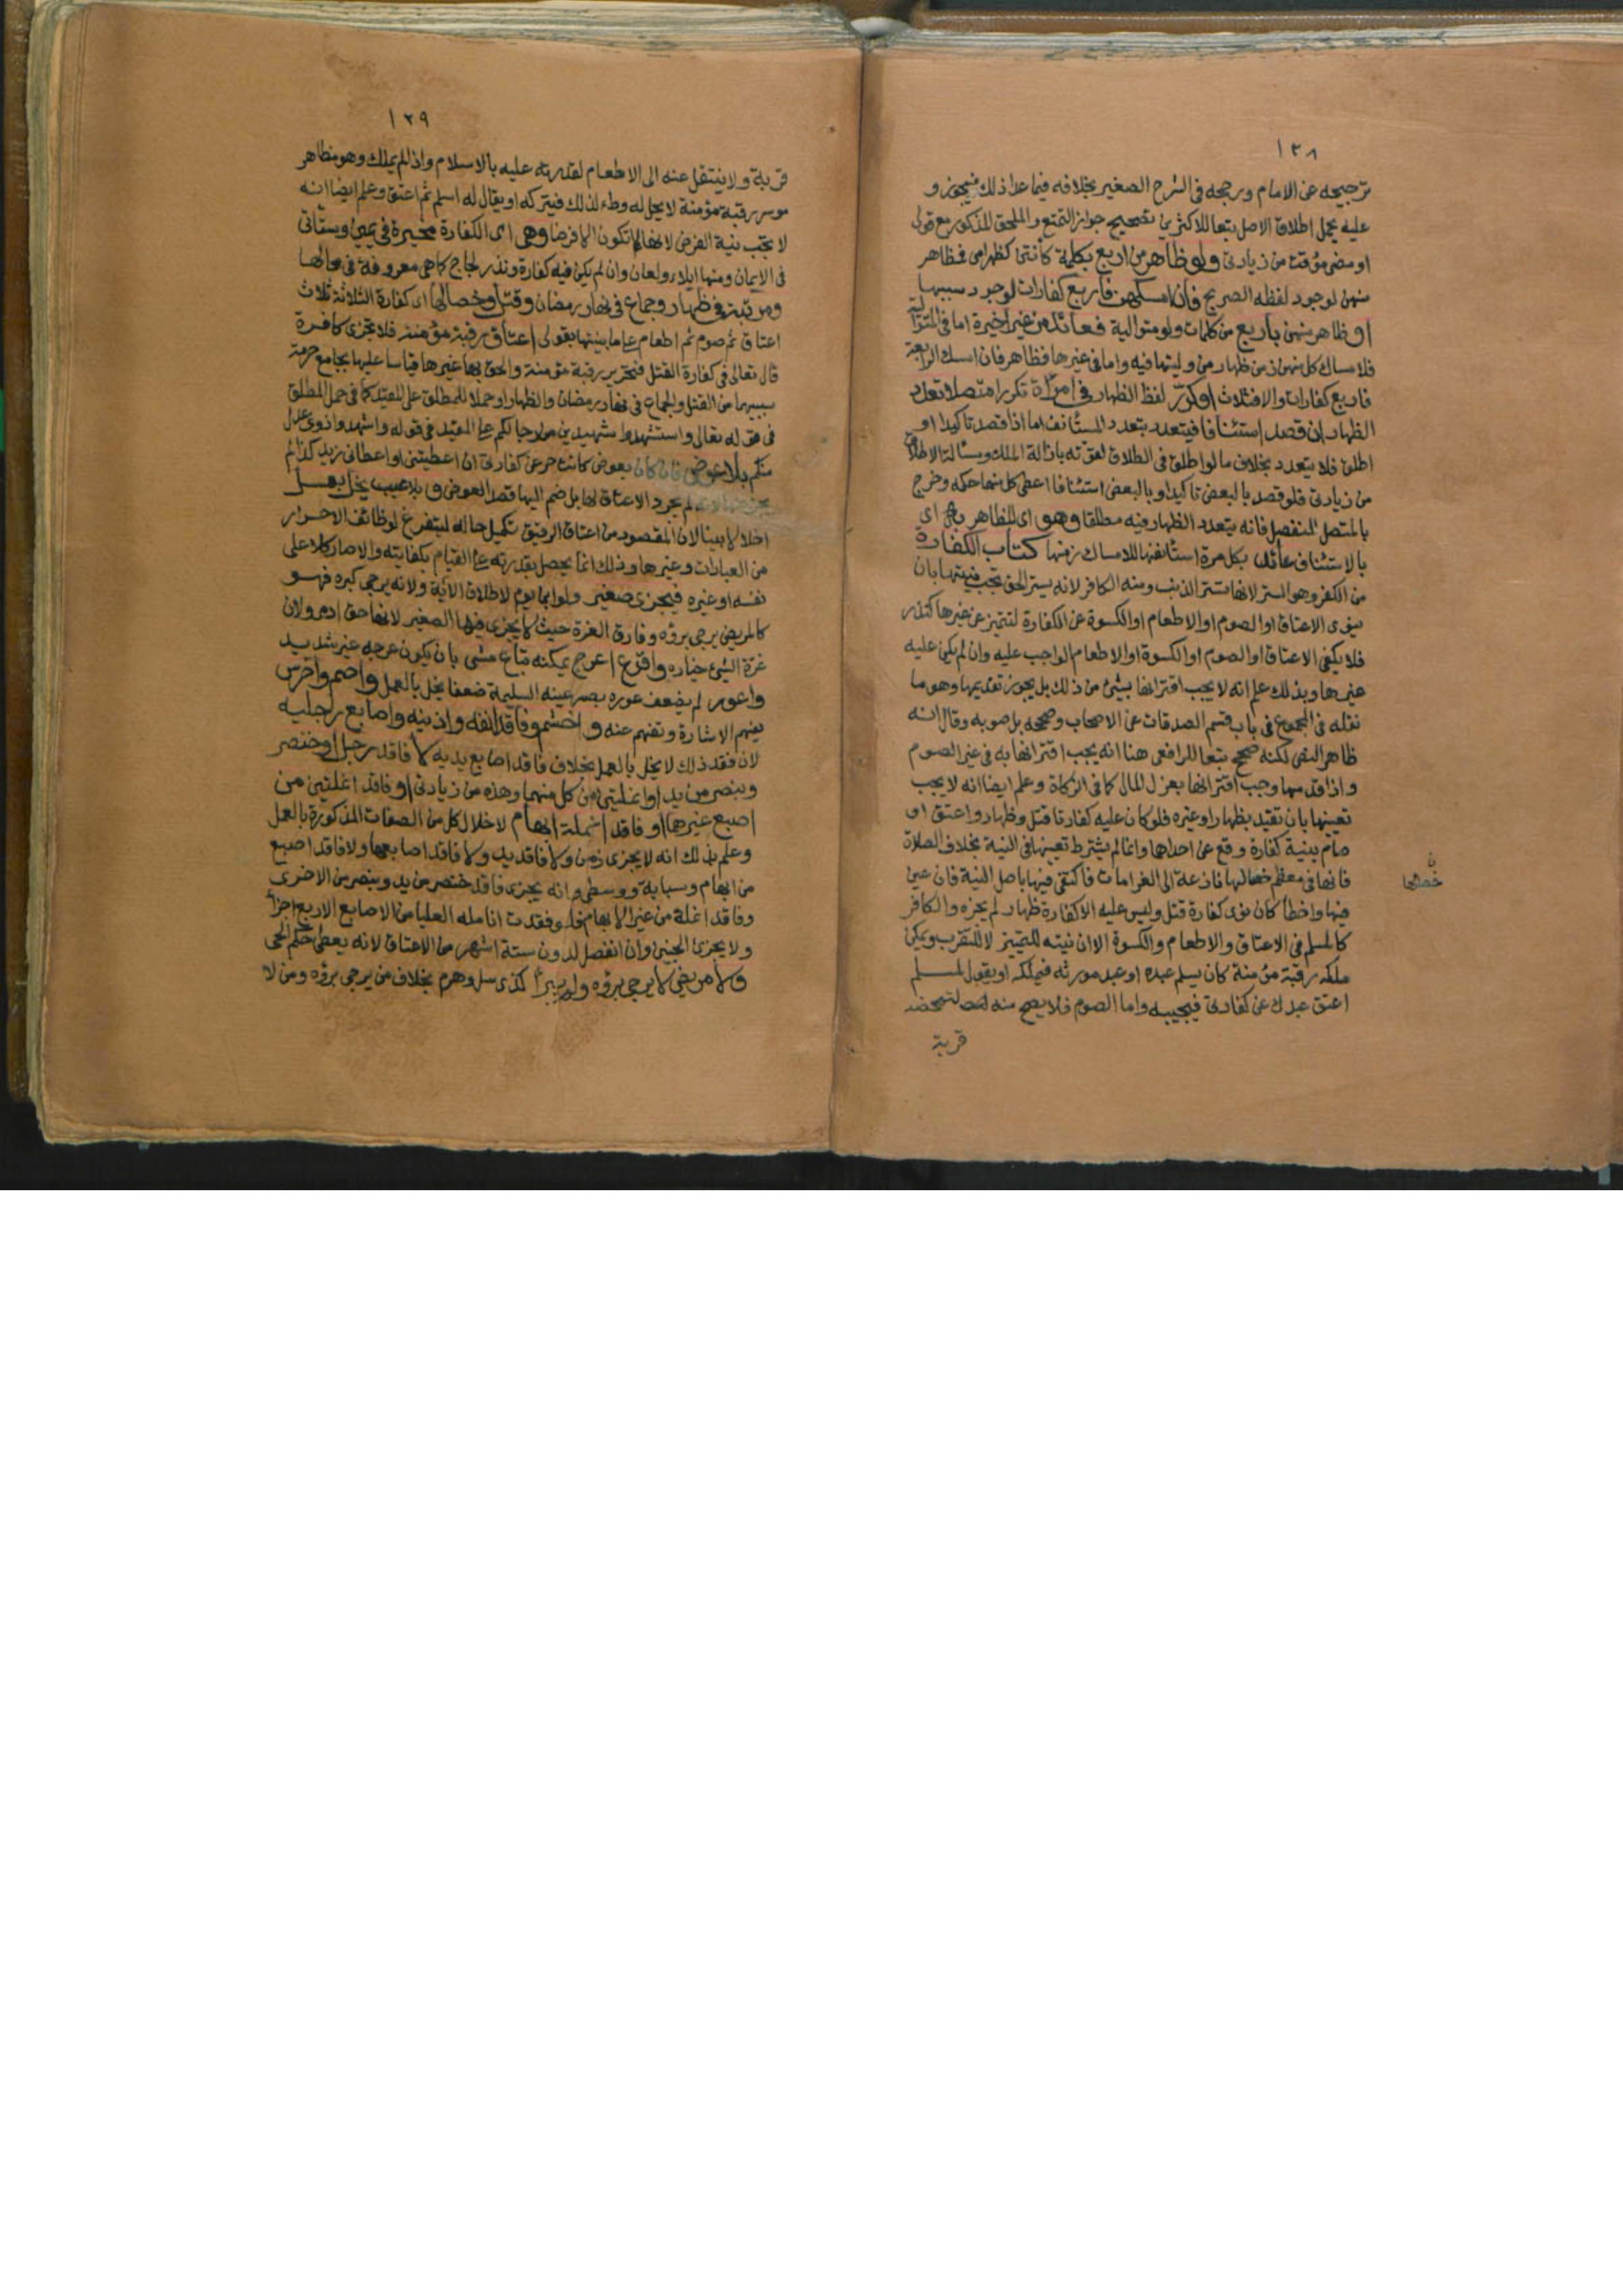 ١٢٨
ترجيحه عن الامام ورجحه فى الشرح الصغير بخلافه فيما عدا ذلك فيجوز و
عليه يحمل اطلاق الاصل تبعا للاكثرين تصحيح جواز التمتع والملحق المذكور مع قولى
او مضى موقت من زيادتى ولو ظاهر من اربع بكلمة كانتن كظهر امى فمظاهر
منهن لوجود لفظه الصريح فان امسكهن فاربع كفارات لوجود سببها
او ظاهر منهن باربع من كلمات ولو متوالية فعائد من غير اخيرة اما فى المتوالية
فلامساك كل منهن زمن ظهار من وليتها فيه واما فى غيرها فظاهر فان امسك الرابعة
فاربع كفارات والا فثلاث او كرر لفظ الظهار فى امرأة تكررا متصلا تعدد
الظهار ان قصد استئنافا فيتعدد بتعدد المستأنف اما اذا قصد تاكيدا او
اطلق فلا يتعدد بخلاف ما لو اطلق فى الطلاق لقوته بازالة الملك ومسألة الاطلاق
من زيادتى فلو قصد بالبعض تاكيدا وبالبعض استئنافا اعطى كل منهما حكمه وخرج
بالمتصل المنفصل فانه يتعدد الظهار فيه مطلقا وهو اى المظاهر به اى
بالاستئناف عائد بكل مرة استأنفها للامساك زمنها كتاب الكفارة
من الكفر وهو الستر لانها تستر الذنب ومنه الكافر لانه يستر الحق تجب نيتها بان
ينوى الاعتاق او الصوم او الاطعام او الكسوة عن الكفارة لتتميز عن غيرها كنذر
فلا يكفى الاعتاق او الصوم او الكسوة او الاطعام الواجب عليه وان لم يكن عليه
غيرها وبذلك علم انه لا يجب اقترانها بشئ من ذلك بل يجوز تقديمها وهو ما
نقله فى المجموع فى باب قسم الصدقات عن الاصحاب وصححه بل صوبه وقال انه
ظاهر النص لكنه صحح تبعا للرافعى هنا انه يجب اقترانها به فى غير الصوم
واذا قدمها وجب اقترانها بعزل المال كما فى الزكاة وعلم ايضا انه لا يجب
تعيينها بان تقيد بظهار او غيره فلو كان عليه كفارتا قتل وظهار واعتق او
صام بنية كفارة وقع عن احداهما وانما لم يشترط تعيينها فى النية بخلاف الصلاة
فانها فى معظم خصالها نازعة الى الغرامات فاكتفى فيها باصل النية فان عين
فيها واخطأ كان نوى كفارة قتل وليس عليه الا كفارة ظهار لم يجزه والكافر
كالمسلم فى الاعتاق والاطعام والكسوة الا ان نيته للتمييز لا للتقرب ويمكن
ملكه رقبة مؤمنة كان يسلم عبده او عبد مورثه فيملكه او يقول لمسلم
اعتق عبدك عن كفارتى فيجيبه واما الصوم فلا يصح منه لتمحضه
قربة
خصالها
١٢٩
قربة ولا ينتقل عنه الى الاطعام لقدرته عليه بالاسلام واذا لم يملك وهو مظاهر
موسر رقبة مؤمنة لا يحل له وطء لذلك فيتركه او يقال له اسلم ثم اعتق وعلم ايضا انه
لا تجب نية الفرض لانها لا تكون الا فرضا وهى اى الكفارة مخيرة فى يمين وستأتى
فى الايمان ومنها ايلاء ولعان وان لم يكن فيه كفارة ونذر لجاج كما هى معروفة فى محالها
ومرتبة فى ظهار وجماع فى نهار رمضان وقتل وخصالها اى كفارة الثلاثة ثلاث
اعتاق ثم صوم ثم اطعام على ما بينتها بقولى اعتاق رقبة مؤمنة فلا تجزى كافرة
قال تعالى فى كفارة القتل فتحرير رقبة مؤمنة والحق بها غيرها قياسا عليها بجامع حرمة
سببيهما من القتل والجماع فى نهار رمضان والظهار او حملا للمطلق على المقيد كما فى حمل المطلق
فى قوله تعالى واستشهدوا شهيدين من رجالكم على المقيد فى قوله واشهدوا ذوى عدل
منكم بلا عوض فان كان بعوض كانت حر عن كفارتى ان اعطيتنى او اعطانى زيد كذا لم
لم يجرد الاعتاق لها بل ضم اليها قصد العوض و بلا عيب يخل بعمل
اخلالا بينا لان المقصود من اعتاق الرقيق تكميل حاله ليتفرغ لوظائف الاحرار
من العبادات وغيرها وذلك انما يحصل بقدرته على القيام بكفايته والا صار كلا على
نفسه او غيره فيجزى صغير ولو ابن يوم لاطلاق الآية ولانه يرجى كبره فهو
كالمريض يرجى برؤه وفارق الغرة حيث لا يجزى فيها الصغير لانها حق ادمى ولان
غرة الشئ خياره واقرع اعرج يمكنه تباع مشى بان يكون عرجه غير شديد
واعور لم يضعف عوره بصر عينه السليمة ضعفا يخل بالعمل واصم واخرس
يفهم الاشارة وتفهم عنه و اخشم وفاقد انفه واذنيه واصابع رجليه
لان فقد ذلك لا يخل بالعمل بخلاف فاقد اصابع يديه لا فاقد رجل او خنصر
وبنصر من يد او انملتين من كل منهما وهذه من زيادتى او فاقد انملتين من
اصبع غيرهما او فاقد انملة ابهام لاخلال كل من الصفات المذكورة بالعمل
وعلم بذلك انه لا يجزى زمن ولا فاقد يد ولا فاقد اصابعها ولا فاقد اصبع
من ابهام وسبابة ووسطى وانه يجزى فاقد خنصر من يد وبنصر من الاخرى
وفاقد انملة من غير الابهام فلو فقدت انامله العليا من الاصابع الاربع اجزأ
ولا يجزى الجنين وان انفصل لدون ستة اشهر من الاعتاق لانه يعطى حكم الحى
ولا مريض لا يرجى برؤه ولم يبرأ كذى سل وهرم بخلاف من يرجى برؤه ومن لا